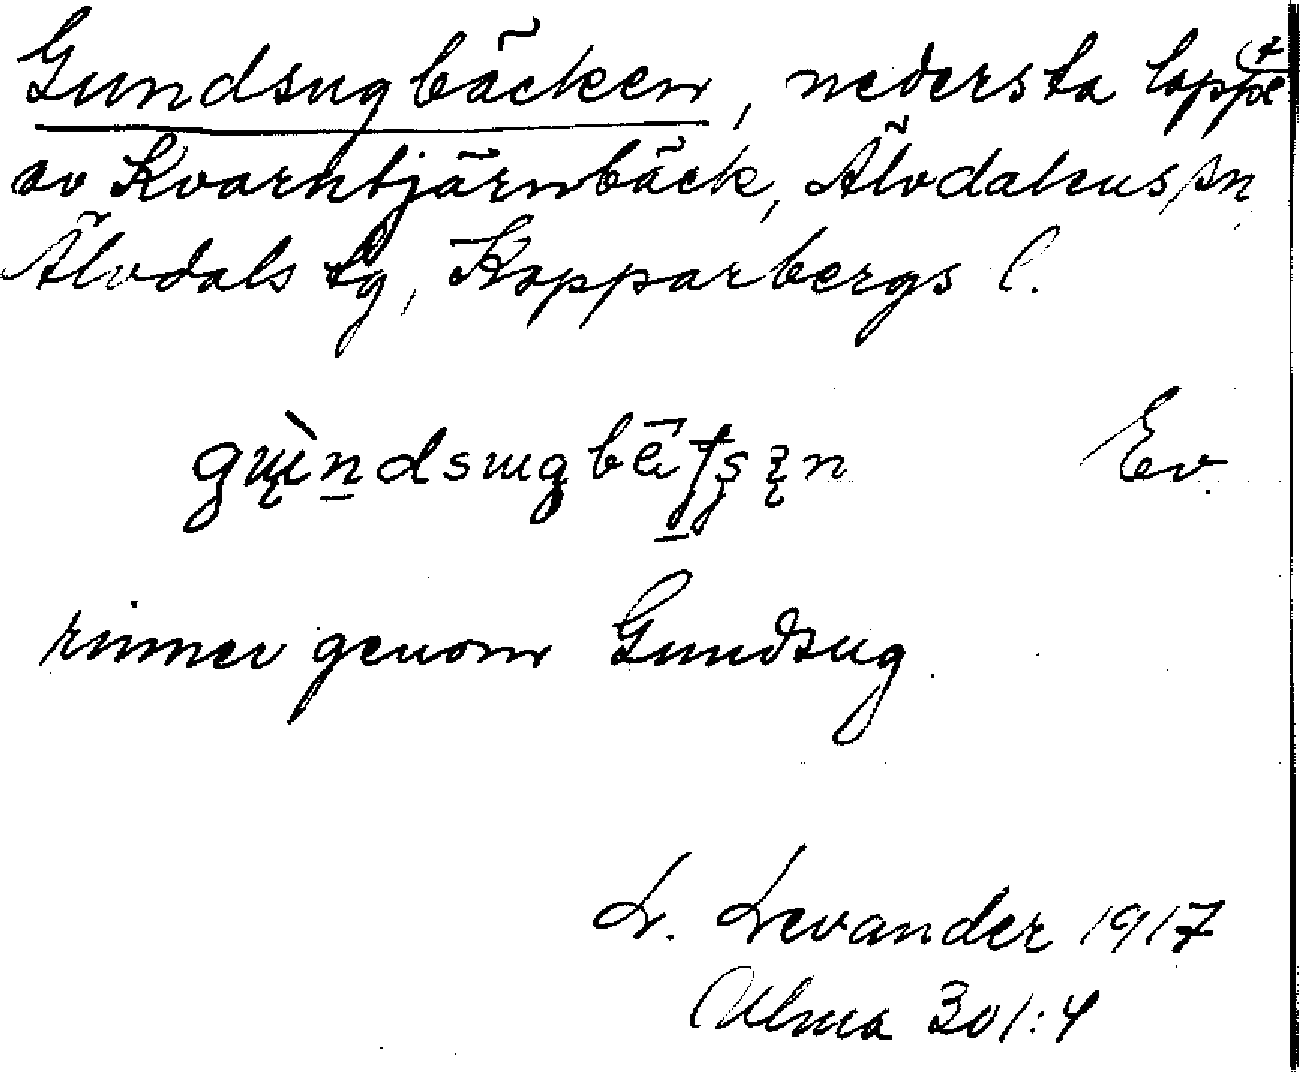 Gundsugbäcken, nedersta loppet
av Kvarntjärnbäck, Älvdalens sn
Älvdals tg, Kopparbergs l.
Ev.
rinner genom Gundsug.
L. Levander 1917
Ulma 301:4